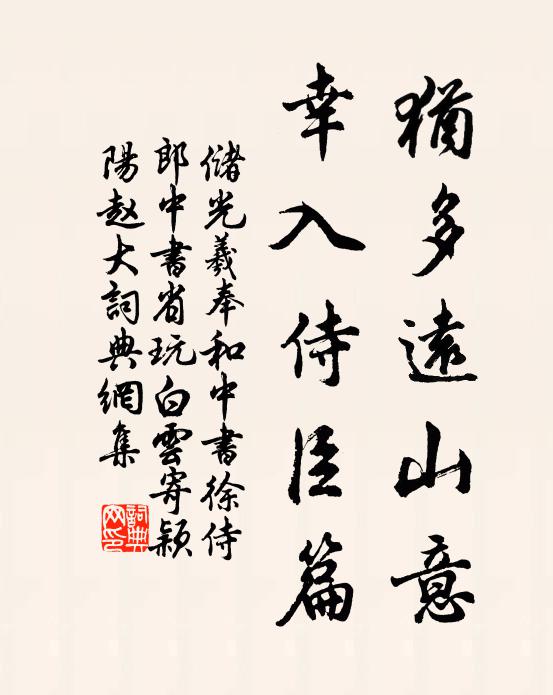 猶多遠山意
幸入侍臣篇
儲光羲奉和中書徐侍
郎中書省玩白雲寄潁
陽趙大詞典網集